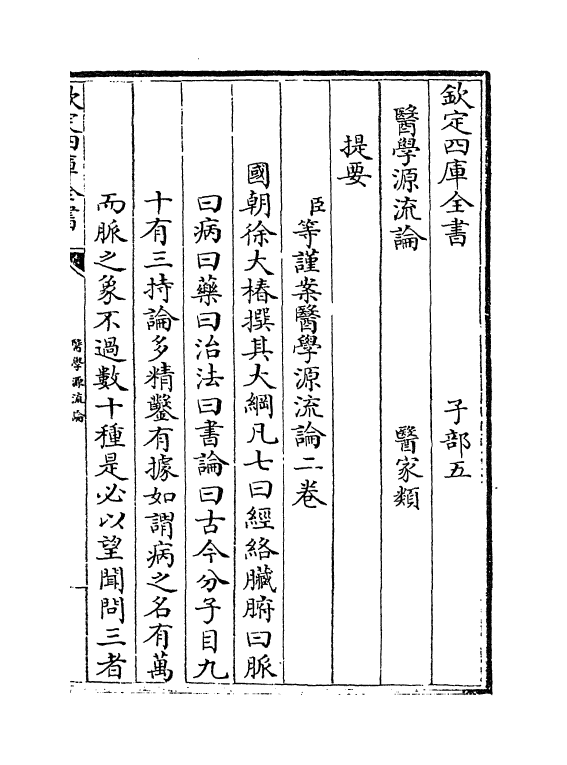 欽定四庫全書　子部五
醫學源流論　醫家類
提要
臣等謹案醫學源流論二卷
國朝徐大椿撰其大綱凡七曰經絡臟腑曰脈
曰病曰藥曰治法曰書論曰古今分子目九
十有三持論多精鑿有據如謂病之名有萬
而脈之象不過數十種是必以望聞問三者
欽定四庫全書
醫學源流論